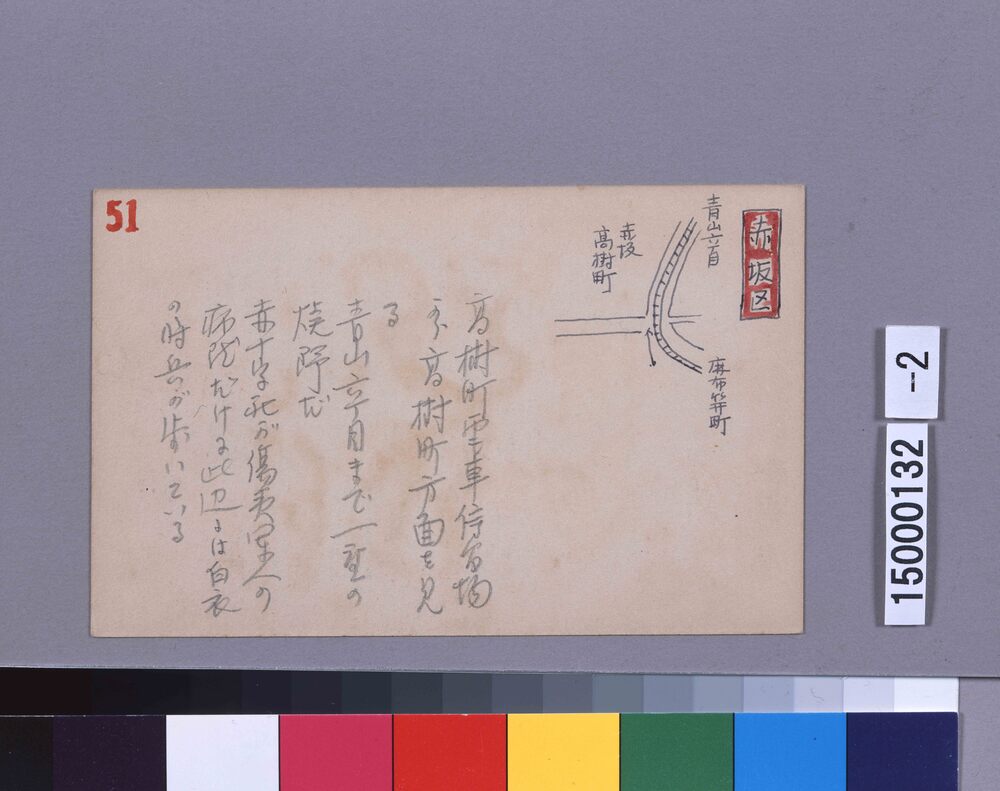 51
赤坂区
青山六丁目
赤坂
高樹町
麻布笄町
高樹町電車停留場
から高樹町方面を見
る
青山六丁目まで一望の
焼野だ
赤十字社が傷夷軍人の
病院だけに此辺には白衣
の時兵が歩いている
--2
15000132